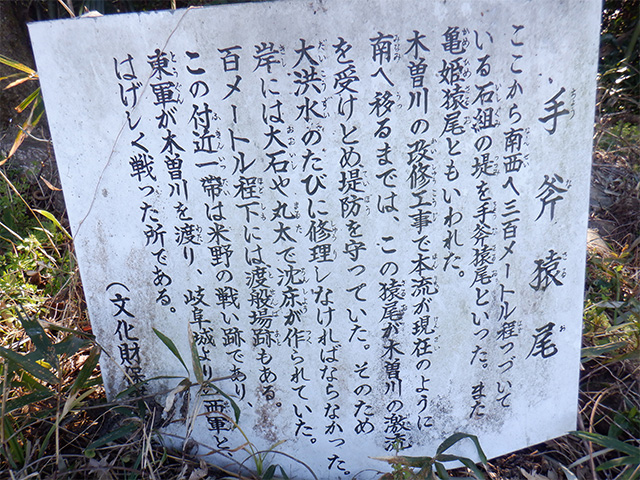 手斧猿尾
ここから南西へ三百メートル程つづいて
いる石組の堤を手斧猿尾といった。また
亀姫猿尾ともいわれた。
木曽川の改修工事で本流が現在のように
南へ移るまでは、この猿尾が木曽川の激流
を受けとめ堤防を守っていた。そのため
大洪水のたびに修理しなければならなかった。
岸には大石や丸太で沈床が作られていた。
百メートル程下には渡船場跡もある。
この付近一帯は米野の戦い跡であり、
東軍が木曽川を渡り、岐阜城より 西軍と
はげしく戦った所である。
(文化財保